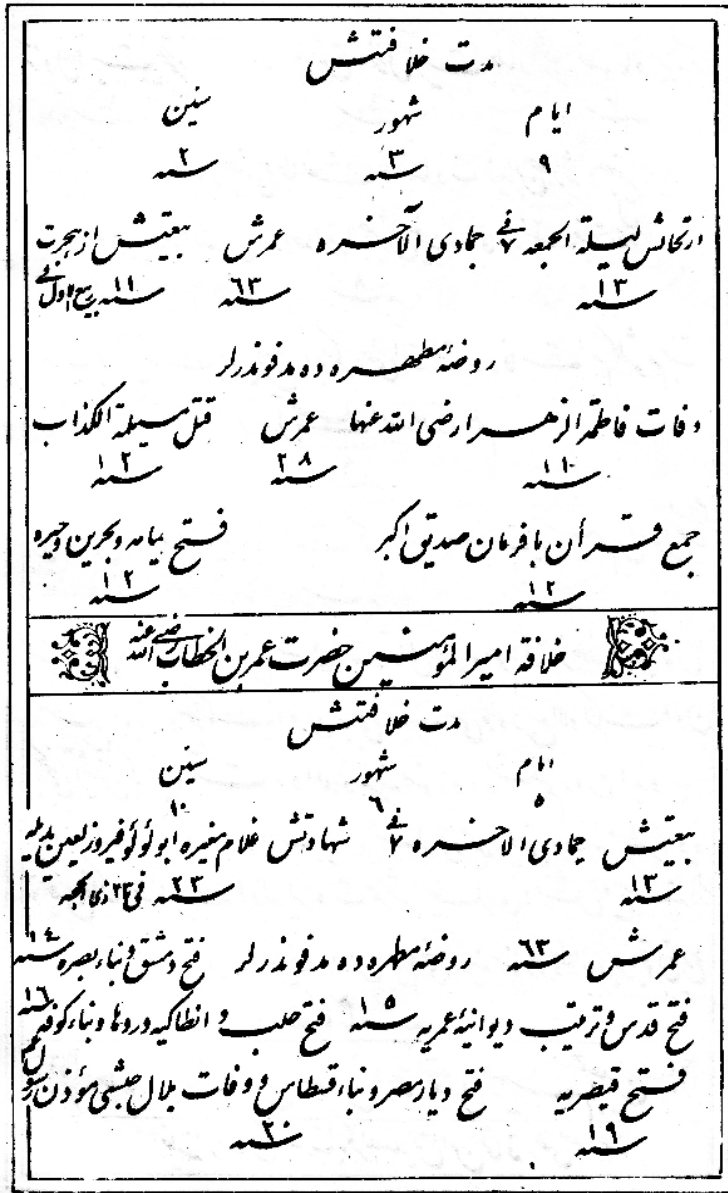 مدت خلافتش
ایام شهور سنین
۹ سنه ۳ سنه ۲
ارتحالش لیلة الجمعه فی ۷ جمادی الآخره عمرش بیعتش از هجرت
سنه ۱۳ سنه ۶۳ سنه ۱۱ فی ربیع الاول
روضهٔ مطهره ده مدفوندرلر
وفات فاطمة الزهرا رضی الله عنها عمرش قتل مسیلمة الکذاب
سنه ۱۱ سنه ۲۸ سنه ۱۲
جمع قرآن بافرمان صدیق اکبر فتح یمامه و بحرین و حیره
سنه ۱۲ سنه ۱۲
خلافة امیر المؤمنین حضرت عمر بن الخطاب رضی الله عنه
مدت خلافتش
ایام شهور سنین
۵ ۶ ۱۰
بیعتش جمادی الاخره فی ۷ شهادتش غلام مغیره ابو لؤلؤ فیروز لعین یدیله
سنه ۱۳ سنه ۲۳ فی ۲۴ ذی الحجه
عمرش سنه ۶۳ روضهٔ مطهره ده مدفوندرلر فتح دمشق و بناء بصره سنه ۱۴
فتح قدس و ترتیب دیوانیهٔ عمریه سنه ۱۵ فتح حلب و انطاکیه و روها و بناء کوفه سنه ۱۶
فتح قیصریه فتح دیار مصر و بناء فسطاس و وفات بلال حبشی مؤذن رسول
سنه ۱۹ سنه ۲۰